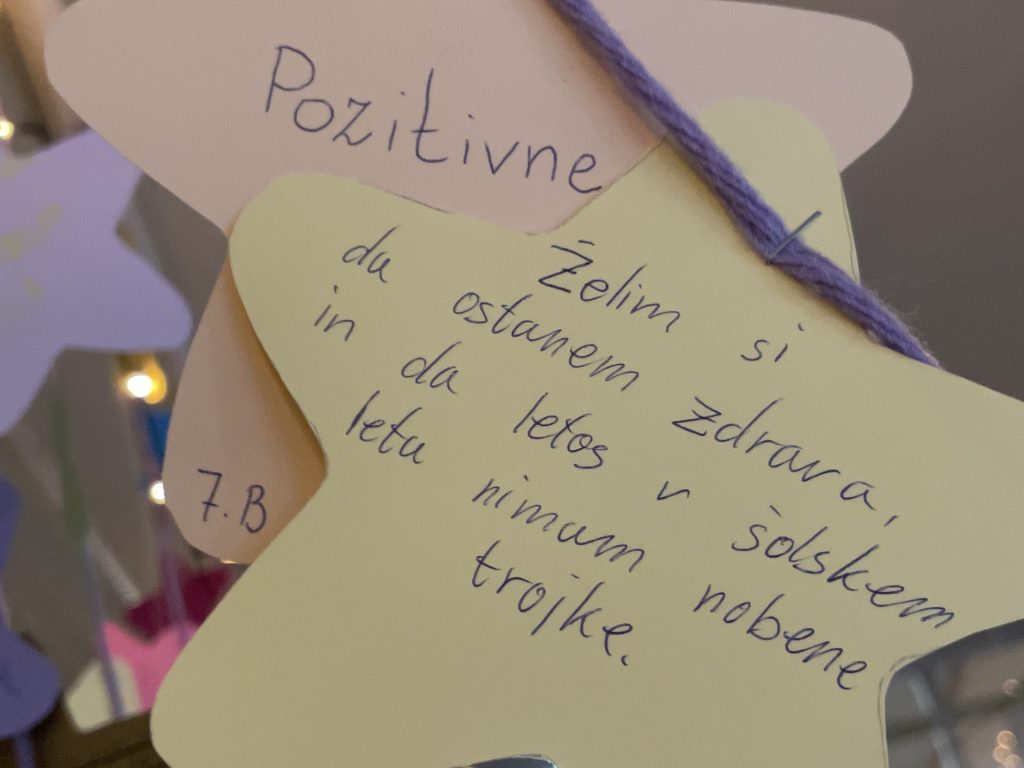 Pozitivne
Želim si
da ostanem zdrava,
in da letos v šolskem
letu nimam nobene
trojke.
7.B